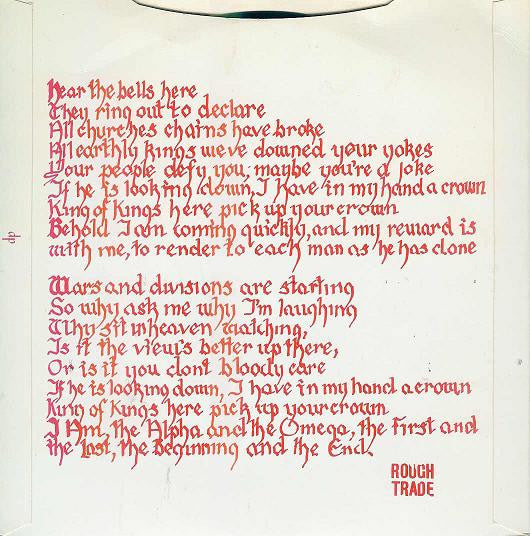 Hear the bells here
They ring out to declare
All churches chains have broke
All earthly kings weve downed your yokes
Your people defy you, maybe you're a joke
If he is looking down, I have in my hand a crown
King of Kings here pick up your crown
Behold I am coming quickly, and my reward is
with me, to render to each man as he has done
Wars and divisions are starting
So why ask me why I'm laughing
Why sit in heaven watching,
Is it the view's better up there,
Or is it you dont bloody care
If he is looking down, I have in my hand a crown
King of Kings here pick up your crown
I Am, the Alpha and the Omega, the First and
the Last, the Beginning and the End.
ROUGH
TRADE
dp